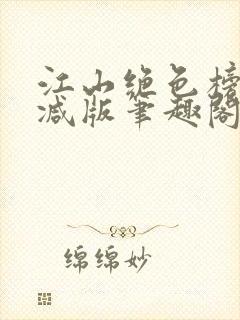 江山绝色榜
减版笔趣阁
绵绵妙